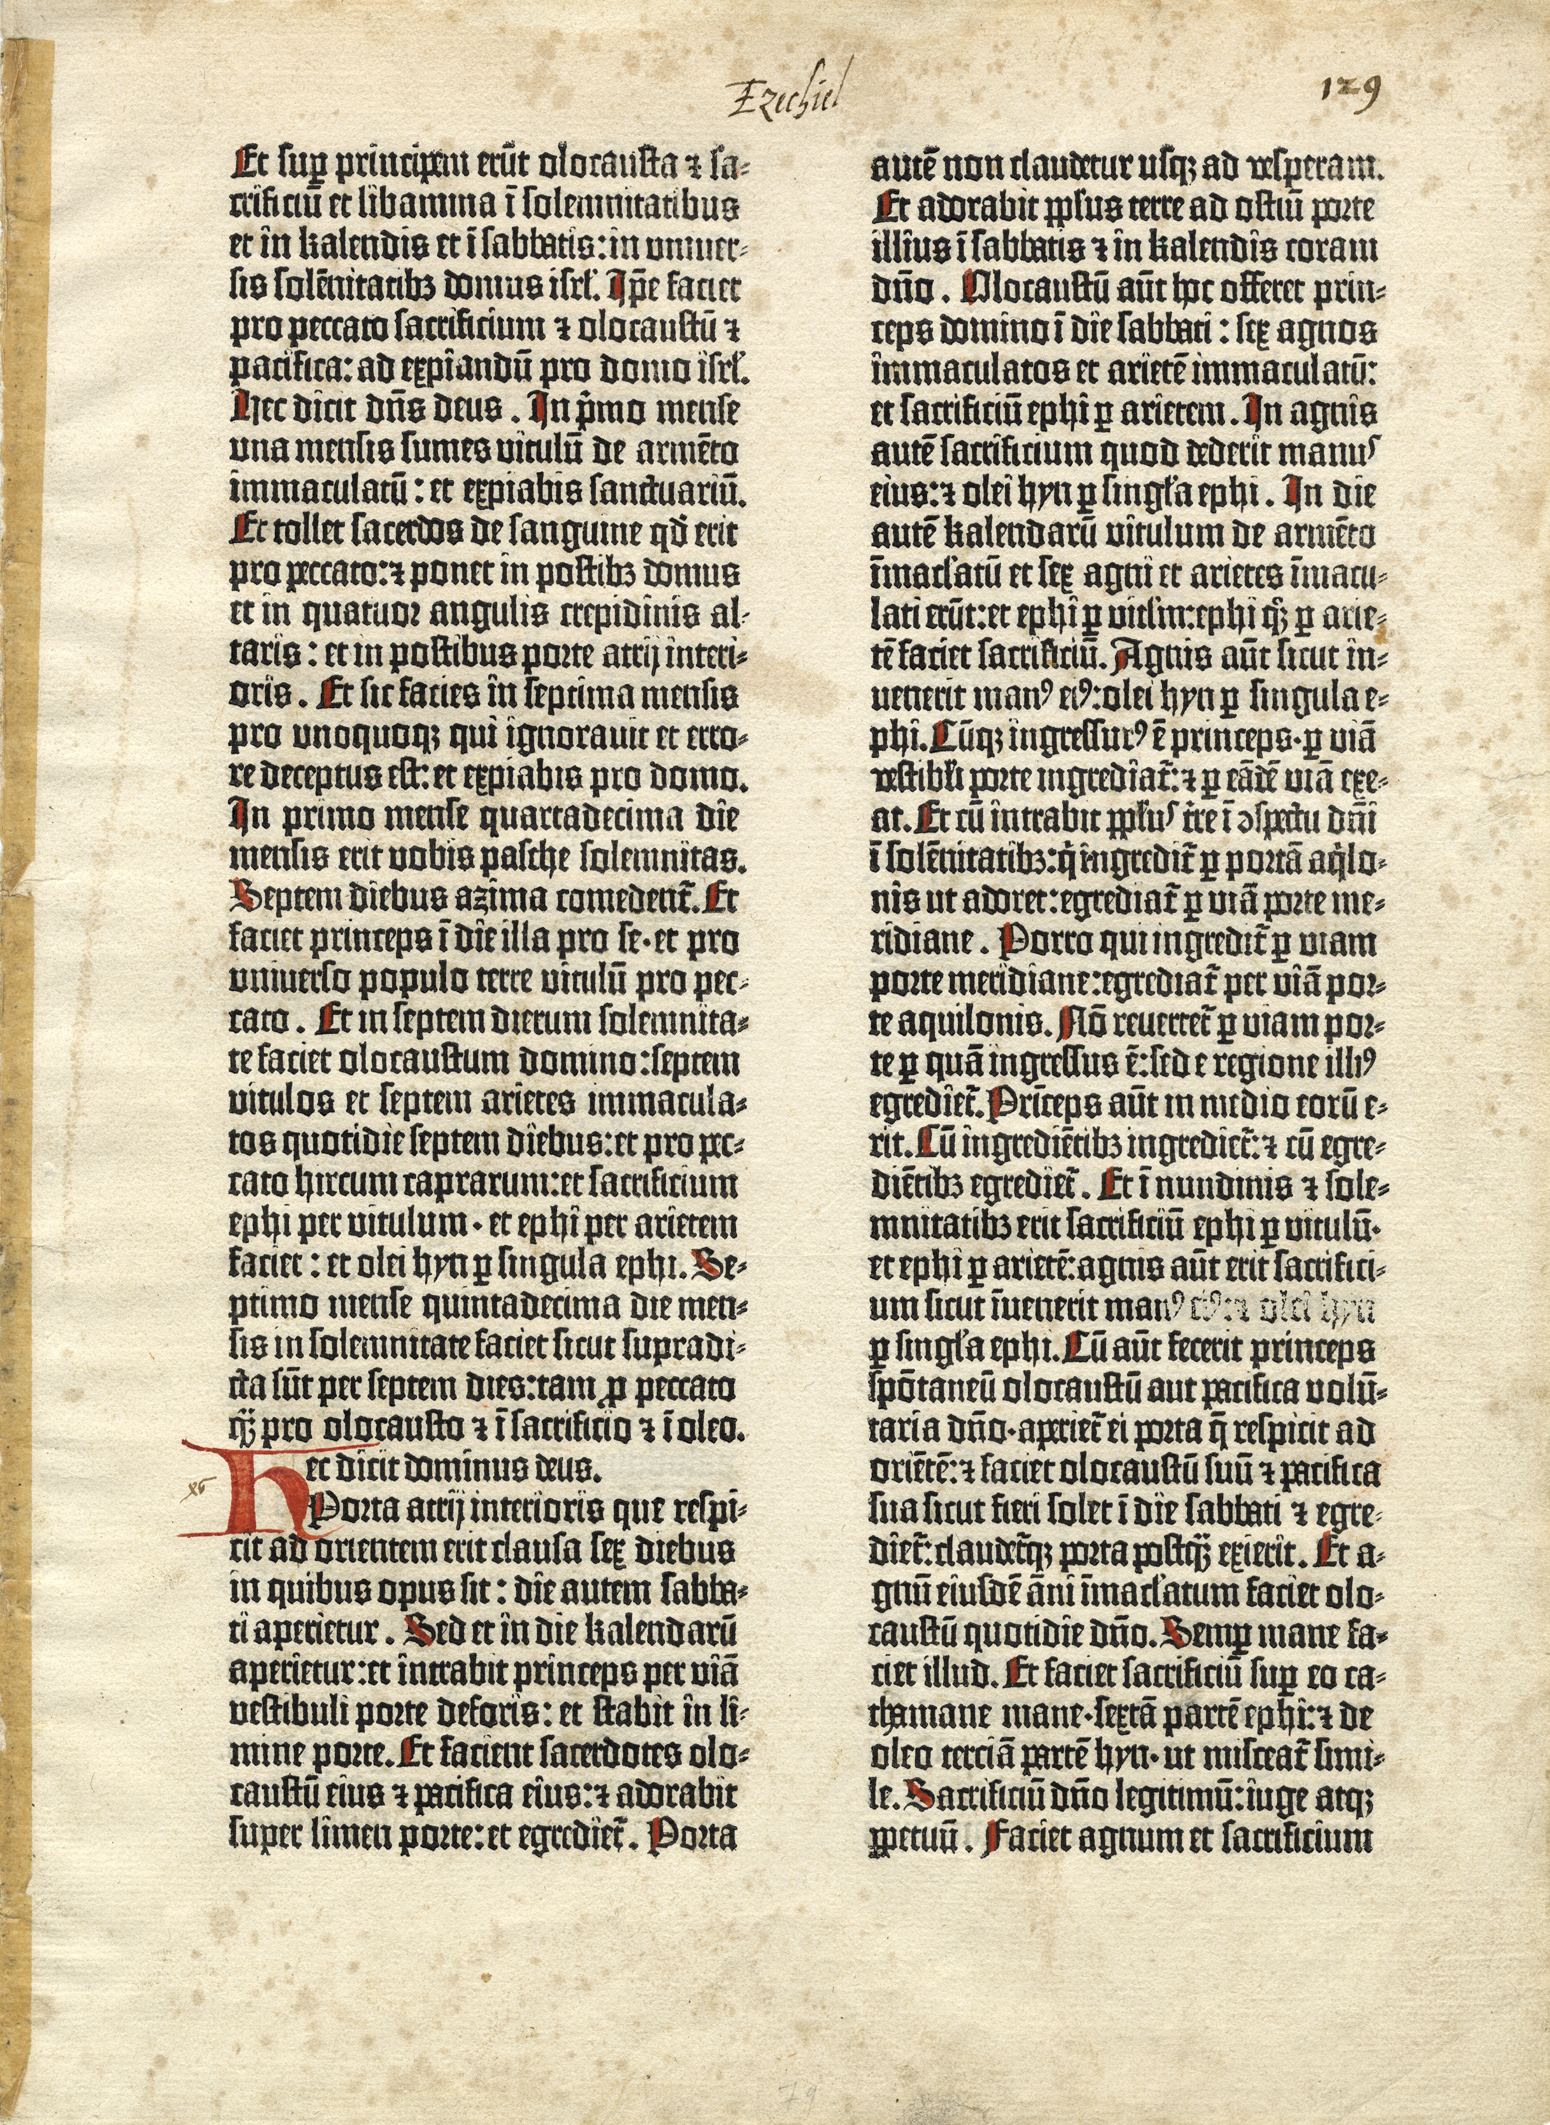 Ezechiel
129
Et sup̱ principem erūt olocausta ⁊ sa-
crificiū et libamina ī solemnitatibus
et in kalendis et ī sabbatis: in univer-
sis solēnitatibꝫ domus isrl̓. Ip̄e faciet
pro peccato sacrificium ⁊ olocaustū ⁊
pacifica: ad expiandū pro domo isrl̓.
Hec dicit dn̄s deus. In p̄mo mense
una mensis sumes vitulū de armēto
immaculatū: et expiabis sanctuariū.
Et tollet sacerdos de sanguine qd̓ erit
pro peccato: ⁊ ponet in postibꝫ domus
et in quatuor angulis crepidinis al-
taris: et in postibus porte atrij interi-
oris. Et sic facies in septima mensis
pro unoquoqꝫ qui ignoravit et erro-
re deceptus est: et expiabis pro domo.
In primo mense quartadecima die
mensis erit vobis pasche solemnitas.
Septem diebus azima comedent̄. Et
faciet princeps ī die illa pro se· et pro
universo populo terre vitulū pro pec-
cato. Et in septem dierum solemnita-
te faciet olocaustum domino: septem
vitulos et septem arietes immacula-
tos quotidie septem diebus: et pro pec-
cato hircum caprarum: et sacrificium
ephi per vitulum· et ephi per arietem
faciet: et olei hyn ꝑ singula ephi. Se-
ptimo mense quintadecima die men-
sis in solemnitate faciet sicut supradi-
cta sūt per septem dies: tam ꝓ peccato
qꝫ̄ pro olocausto ⁊ ī sacrificio ⁊ ī oleo.
Hec dicit dominus deus.
Porta atrij interioris que respi-
cit ad orientem erit clausa sex diebus
in quibus opus sit: die autem sabba-
ti aperietur. Sed et in die kalendarū
aperietur: et intrabit princeps per viā
vestibuli porte deforis: et stabit in li-
mine porte. Et facient sacerdotes olo-
caustū eius ⁊ pacifica eius: ⁊ adorabit
super limen porte: et egrediet̄. Porta
autē non claudetur usqꝫ ad vesperam.
Et adorabit ppl̓us terre ad ostiū porte
illius ī sabbatis ⁊ in kalendis coram
dn̄o. Olocaustū aūt hoc offeret prin-
ceps domino ī die sabbati: sex agnos
immaculatos et arietē immaculatū:
et sacrificiū ephi ꝑ arietem. In agnis
autē sacrificium quod dederit manus
eius: ⁊ olei hyn ꝑ singl̓a ephi. In die
autē kalendarū vitulum de armēto
īmacl̓atū et sex agni et arietes īmacu-
lati erūt: et ephi ꝑ vitl̓m: ephi qꝫ ꝑ arie-
tē faciet sacrificiū. Agnis aūt sicut in-
venerit manꝰ eiꝰ: olei hyn ꝑ singula e-
phi. Cūqꝫ ingressurꝰ ē princeps· ꝑ viā
vestibl̓i porte ingrediat̄: ⁊ ꝑ eādē viā exe-
at. Et cū intrabit ppl̓us t̄re ī ꝯspectu dn̄i
ī solēnitatibꝫ: q̓ ingredit̄ ꝑ portā aq̓lo-
nis ut adoret: egrediat̄ ꝑ viā porte me-
ridiane. Porro qui ingredit̄ ꝑ viam
porte meridiane: egrediat̄ per viā por-
te aquilonis. Nō revertet̄ ꝑ viam por-
te ꝑ quā ingressus ē: sed e regione illiꝰ
egrediet̄. Prīceps aūt in medio eorū e-
rit. Cū ingrediētibꝫ ingrediet̄: ⁊ cū egre-
diētibꝫ egrediet̄. Et ī nundinis ⁊ sole-
mnitatibꝫ erit sacrificiū ephi ꝑ vitulū·
et ephi ꝑ arietē: agnis aūt erit sacrifici-
um sicut īvenerit manꝰ eiꝰ: ⁊ olei hyn
ꝑ singl̓a ephi. Cū aūt fecerit princeps
spōtaneū olocaustū aut pacifica volū-
taria dn̄o· aperiet̄ ei porta q̄ respicit ad
oriētē: ⁊ faciet olocaustū suū ⁊ pacifica
sua sicut fieri solet ī die sabbati ⁊ egre-
diet̄: claudet̄qꝫ porta postqꝫ̄ exierit. Et a-
gnū eiusdē āni īmacl̓atum faciet olo-
caustū quotidie dn̄o. Semꝑ mane fa-
ciet illud. Et faciet sacrificiū suꝑ eo ca-
thamane mane· sextā partē ephi: ⁊ de
oleo terciā partē hyn· ut misceat̄ simi-
le. Sacrificiū dn̄o legitimū: iuge atqꝫ
ꝑpetuū. Faciet agnum et sacrificium
79